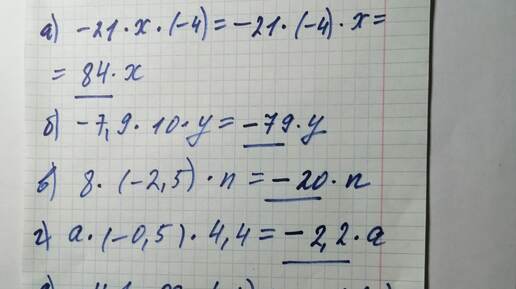 а) -21·x·(-4) = -21·(-4)·x=
= 84·x
б) -7,9·10·y = -79·y
в) 8·(-2,5)·n = -20·n
г) a·(-0,5)·4,4 = -2,2·a